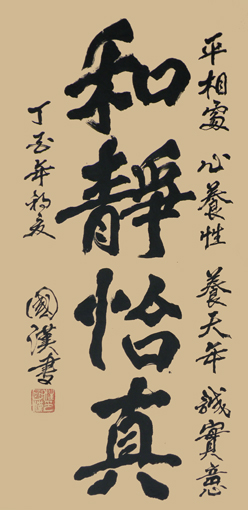 平相處 心養性 養天年 誠實意
和靜怡真
丁酉年初夏
國漢書